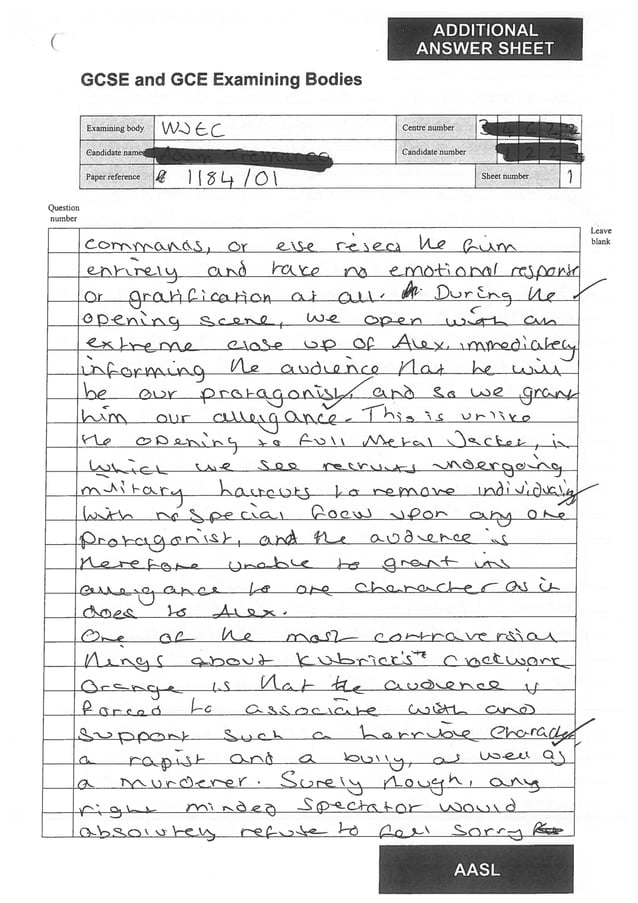 ADDITIONAL
ANSWER SHEET
GCSE and GCE Examining Bodies
Examining body WJEC Centre number
Candidate name Candidate number
Paper reference 1184/01 Sheet number 1
Question
number
Leave
blank
commands, or else reject the film
entirely and take no emotional response
or gratification at all. During the
opening scene, we open with an
extreme close up of Alex, immediately
informing the audience that he will
be our protagonist, and so we grant
him our alleigance. This is unlike
the opening to Full Metal Jacket, in
which we see recruits undergoing
military haircuts to remove individuality
with no special focus upon any one
protagonist, and the audience is
therefore unable to grant its
alleigance to one character as it
does to Alex.
One of the most contraversial
things about Kubrick's Clockwork
Orange is that the audience is
forced to associate with and
support such a horrible character
a rapist and a bully, as well as
a murderer. Surely though, any
right minded spectator would
absolutely refuse to feel sorry
AASL